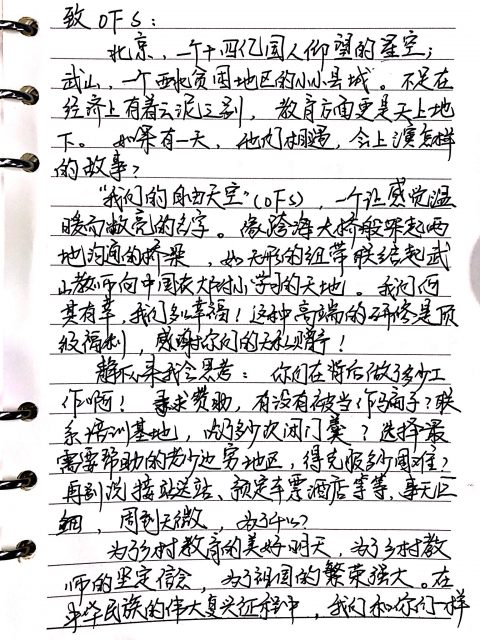 致OFS：
北京，一个十四亿国人仰望的星空；
武山，一个西北贫困地区的小小县城。不足在
经济上有着云泥之别，教育方面更是天上地
下。如果有一天，他们相遇，会上演怎样
的故事？
“我们的自由天空”（OFS），一个让感觉温
暖而敞亮的名字。像跨海大桥般架起两
地沟通的桥梁，如无形的纽带联结起武
山教师向中国农大附小学习的天地。我们何
其有幸，我们多么幸福！这种高端的研修是顶
级福利，感谢你们的无私赠予！
静下来我会思考：你们在背后做了多少工
作啊！寻求赞助，有没有被当作骗子？联
系培训基地，吃了多少次闭门羹？选择最
需要帮助的老少边穷地区，得克服多少困难？
再别说接站送站、预定车票酒店等等，事无巨
细，周到入微，为了什么？
为了乡村教育的美好明天，为了乡村教
师的坚定信念，为了祖国的繁荣强大。在
中华民族的伟大复兴征程中，我们和你们一样